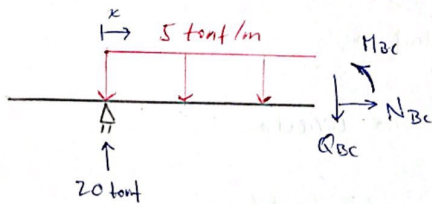 x
5 tonf/m
MBC
NBC
QBC
20 tonf